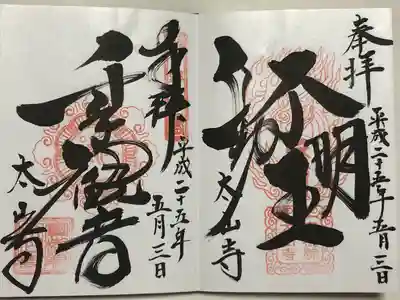 奉拝
平成二十五年五月三日
不動明王
太山寺
奉拝
平成二十五年五月三日
観音
太山寺